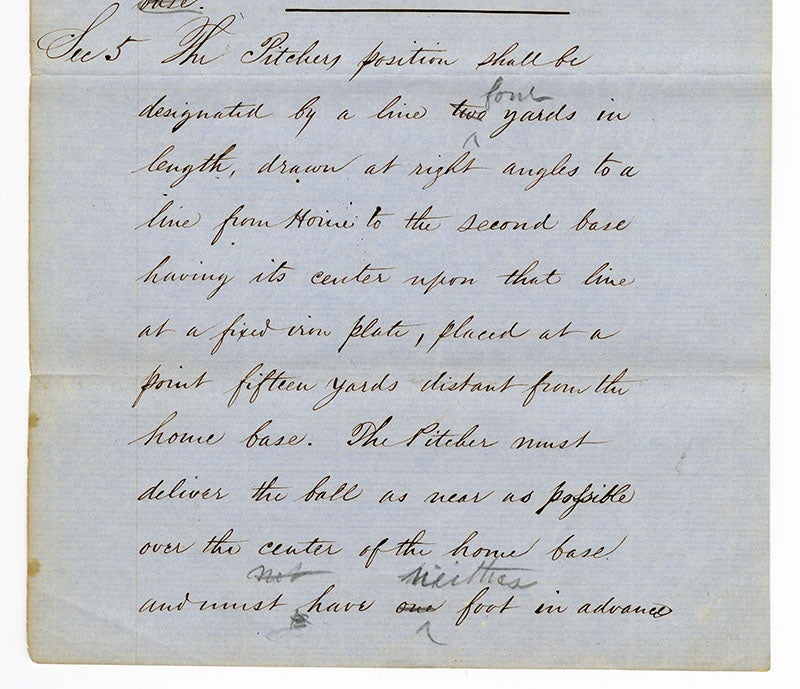 base.
Sec 5 The Pitchers position shall be
four
designated by a line two yards in
length, drawn at right angles to a
line from Home to the second base
having its center upon that line
at a fixed iron plate, placed at a
point fifteen yards distant from the
home base. The Pitcher must
deliver the ball as near as possible
over the center of the home base.
not neither
and must have one foot in advance